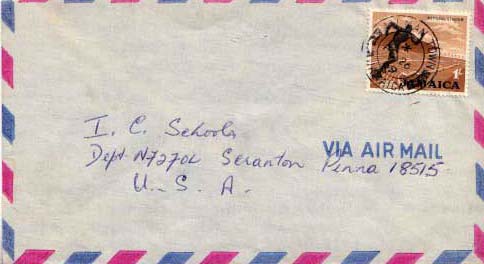 1/-
JAMAICA
I. C. Schools
VIA AIR MAIL
Dept N7270L Scranton Penna 18515
U. S. A.